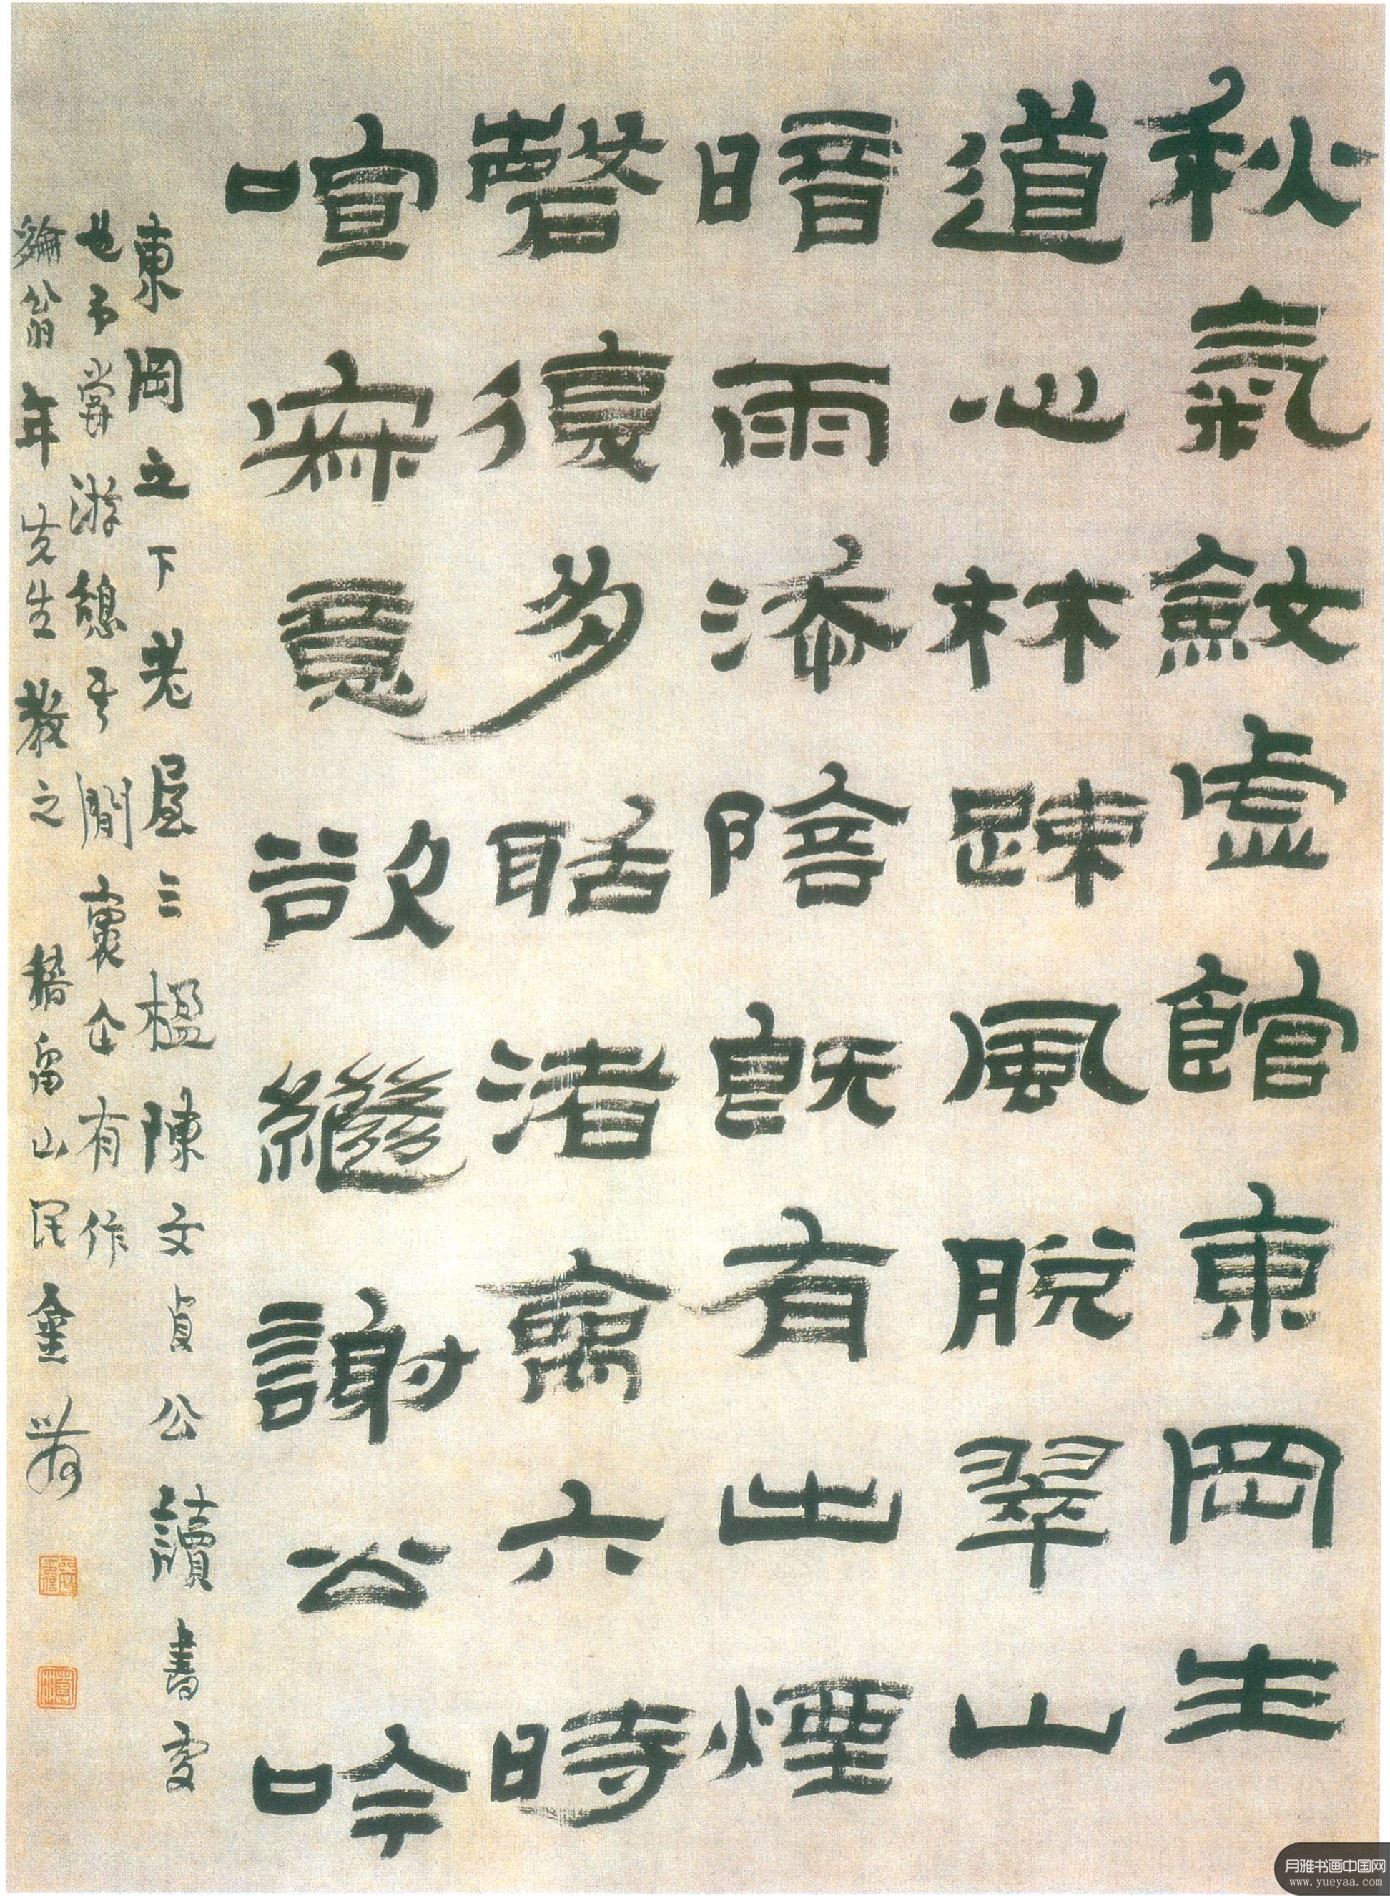 秋氣斂虛館東岡生
道心林疎風脫翠山
暗雨添陰既有出煙
磬復多聒渚禽六時
喧寂意欲繼謝公吟
東岡之下老屋三楹陳文貞公讀書處
也予嘗游憩其間裏企有作
綸翁年先生教之 耤留山民金農
月雅书画中国网
www.yueyaa.com